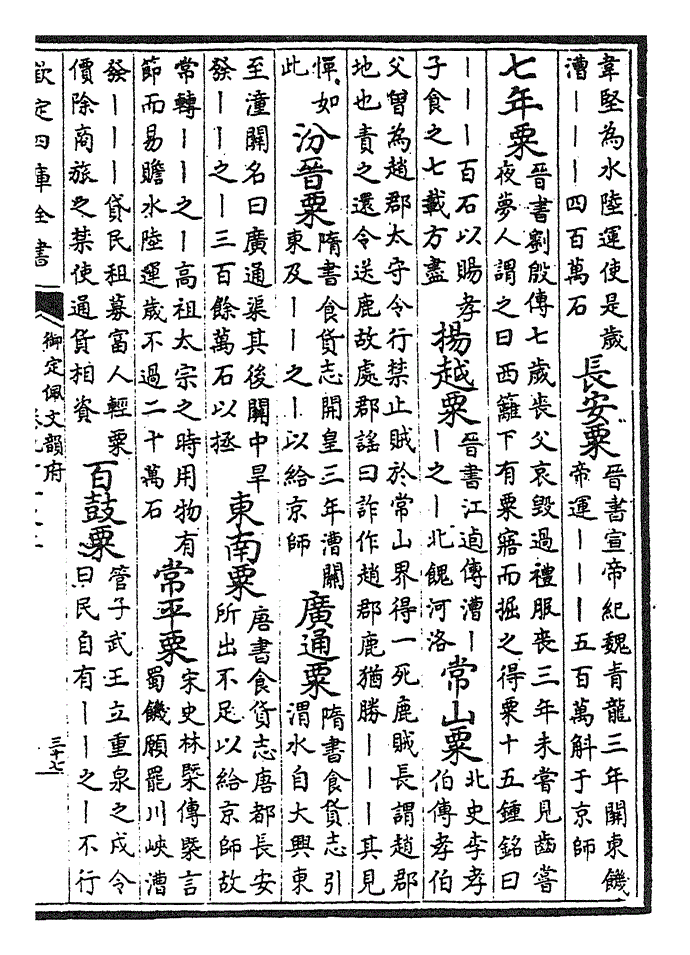 韋堅為水陸運使是歲
漕丨丨丨四百萬石
長安粟
晉書宣帝紀魏青龍三年關東饑
帝運丨丨丨五百萬斛于京師
七年粟
晉書劉殷傳七歲喪父哀毀過禮服喪三年未嘗見齒嘗
夜夢人謂之曰西籬下有粟寤而掘之得粟十五鍾銘曰
丨丨丨百石以賜孝
子食之七載方盡
揚越粟
晉書江逌傳漕丨
丨之丨北餽河洛
常山粟
北史李孝
伯傳孝伯
父曾為趙郡太守令行禁止賊於常山界得一死鹿賊長謂趙郡
地也責之還令送鹿故處郡謠曰詐作趙郡鹿猶勝丨丨丨其見
憚如
此
汾晉粟
隋書食貨志開皇三年漕關
東及丨丨之丨以給京師
廣通粟
隋書食貨志引
渭水自大興東
至潼關名曰廣通渠其後關中旱
發丨丨之丨三百餘萬石以拯
東南粟
唐書食貨志唐都長安
所出不足以給京師故
常轉丨丨之丨高祖太宗之時用物有
節而易贍水陸運歲不過二十萬石
常平粟
宋史林㮣傳㮣言
蜀饑願罷川峽漕
發丨丨丨貸民租募富人輕粟
價除商旅之禁使通貨相資
百鼓粟
管子武王立重泉之戍令
曰民自有丨丨之丨不行
欽定四庫全書
御定佩文韻府
三十七